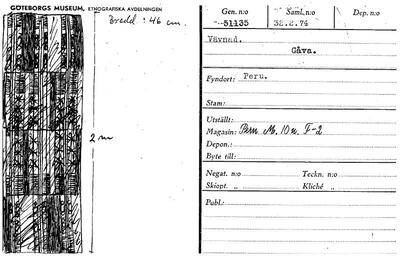 GÖTEBORGS MUSEUM, ETNOGRAFISKA AVDELNINGEN
Bredd: 46 cm.
2 m
Gen. n:o Saml. n:o Dep. n:o
51135 32.2.74
Vävnad.
Gåva.
Fyndort: Peru.
Stam:
Utställt:
Magasin: Peru M. 10 n. F-2
Depon.:
Byte till:
Negat. n:o Teckn. n:o
Skiopt. „ Kliché „
Publ.: